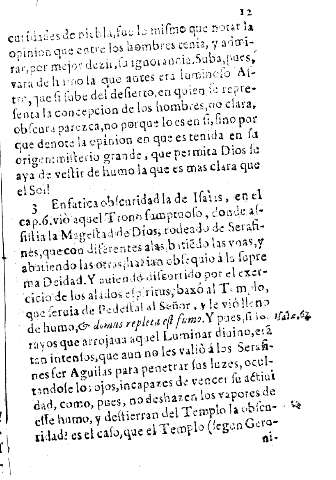 12
curidades de niebla, fue lo mismo que notar la
opinion que entre los hombres tenia, y admi-
rar, por mejor dezir, su ignorancia. Suba, pues,
vara de humo la que antes era luminoso As-
tro, que si sube del desierto, en quien se repre-
senta la concepcion de los hombres, no clara,
obscura parezca, no porque lo es en si, sino por
que denote la opinion en que es tenida en su
origen: misterio grande, que permita Dios se
aya de vestir de humo la que es mas clara que
el Sol!
3 Enfatica obscuridad la de Isaias, en el
cap. 6. viò aquel Trono sumptuoso, donde as-
sistia la Magestad de Dios, rodeado de Serafi-
nes, que con diferentes alas, batiẽdo las vnas, y
abatiendo las otras, hazian obsequio à la supre
ma Deidad. Y auiendo discurrido por el exer-
cicio de los alados espiritus, baxò al Templo,
que seruia de Pedestal al Señor, y le viò lleno
de humo, & domus repleta est fumo. Y pues, si los
Isai. 6.
rayos que arrojaua aquel Luminar diuino, erã
tan intensos, que aun no les valiò à los Serafi-
nes ser Aguilas para penetrar sus luzes, ocul-
tandose los ojos, incapazes de vencer su actiui
dad, como, pues, no deshazen los vapores de
esse humo, y destierran del Templo la obscu-
ridad? es el caso, que el Templo (segun Gero-
ni-